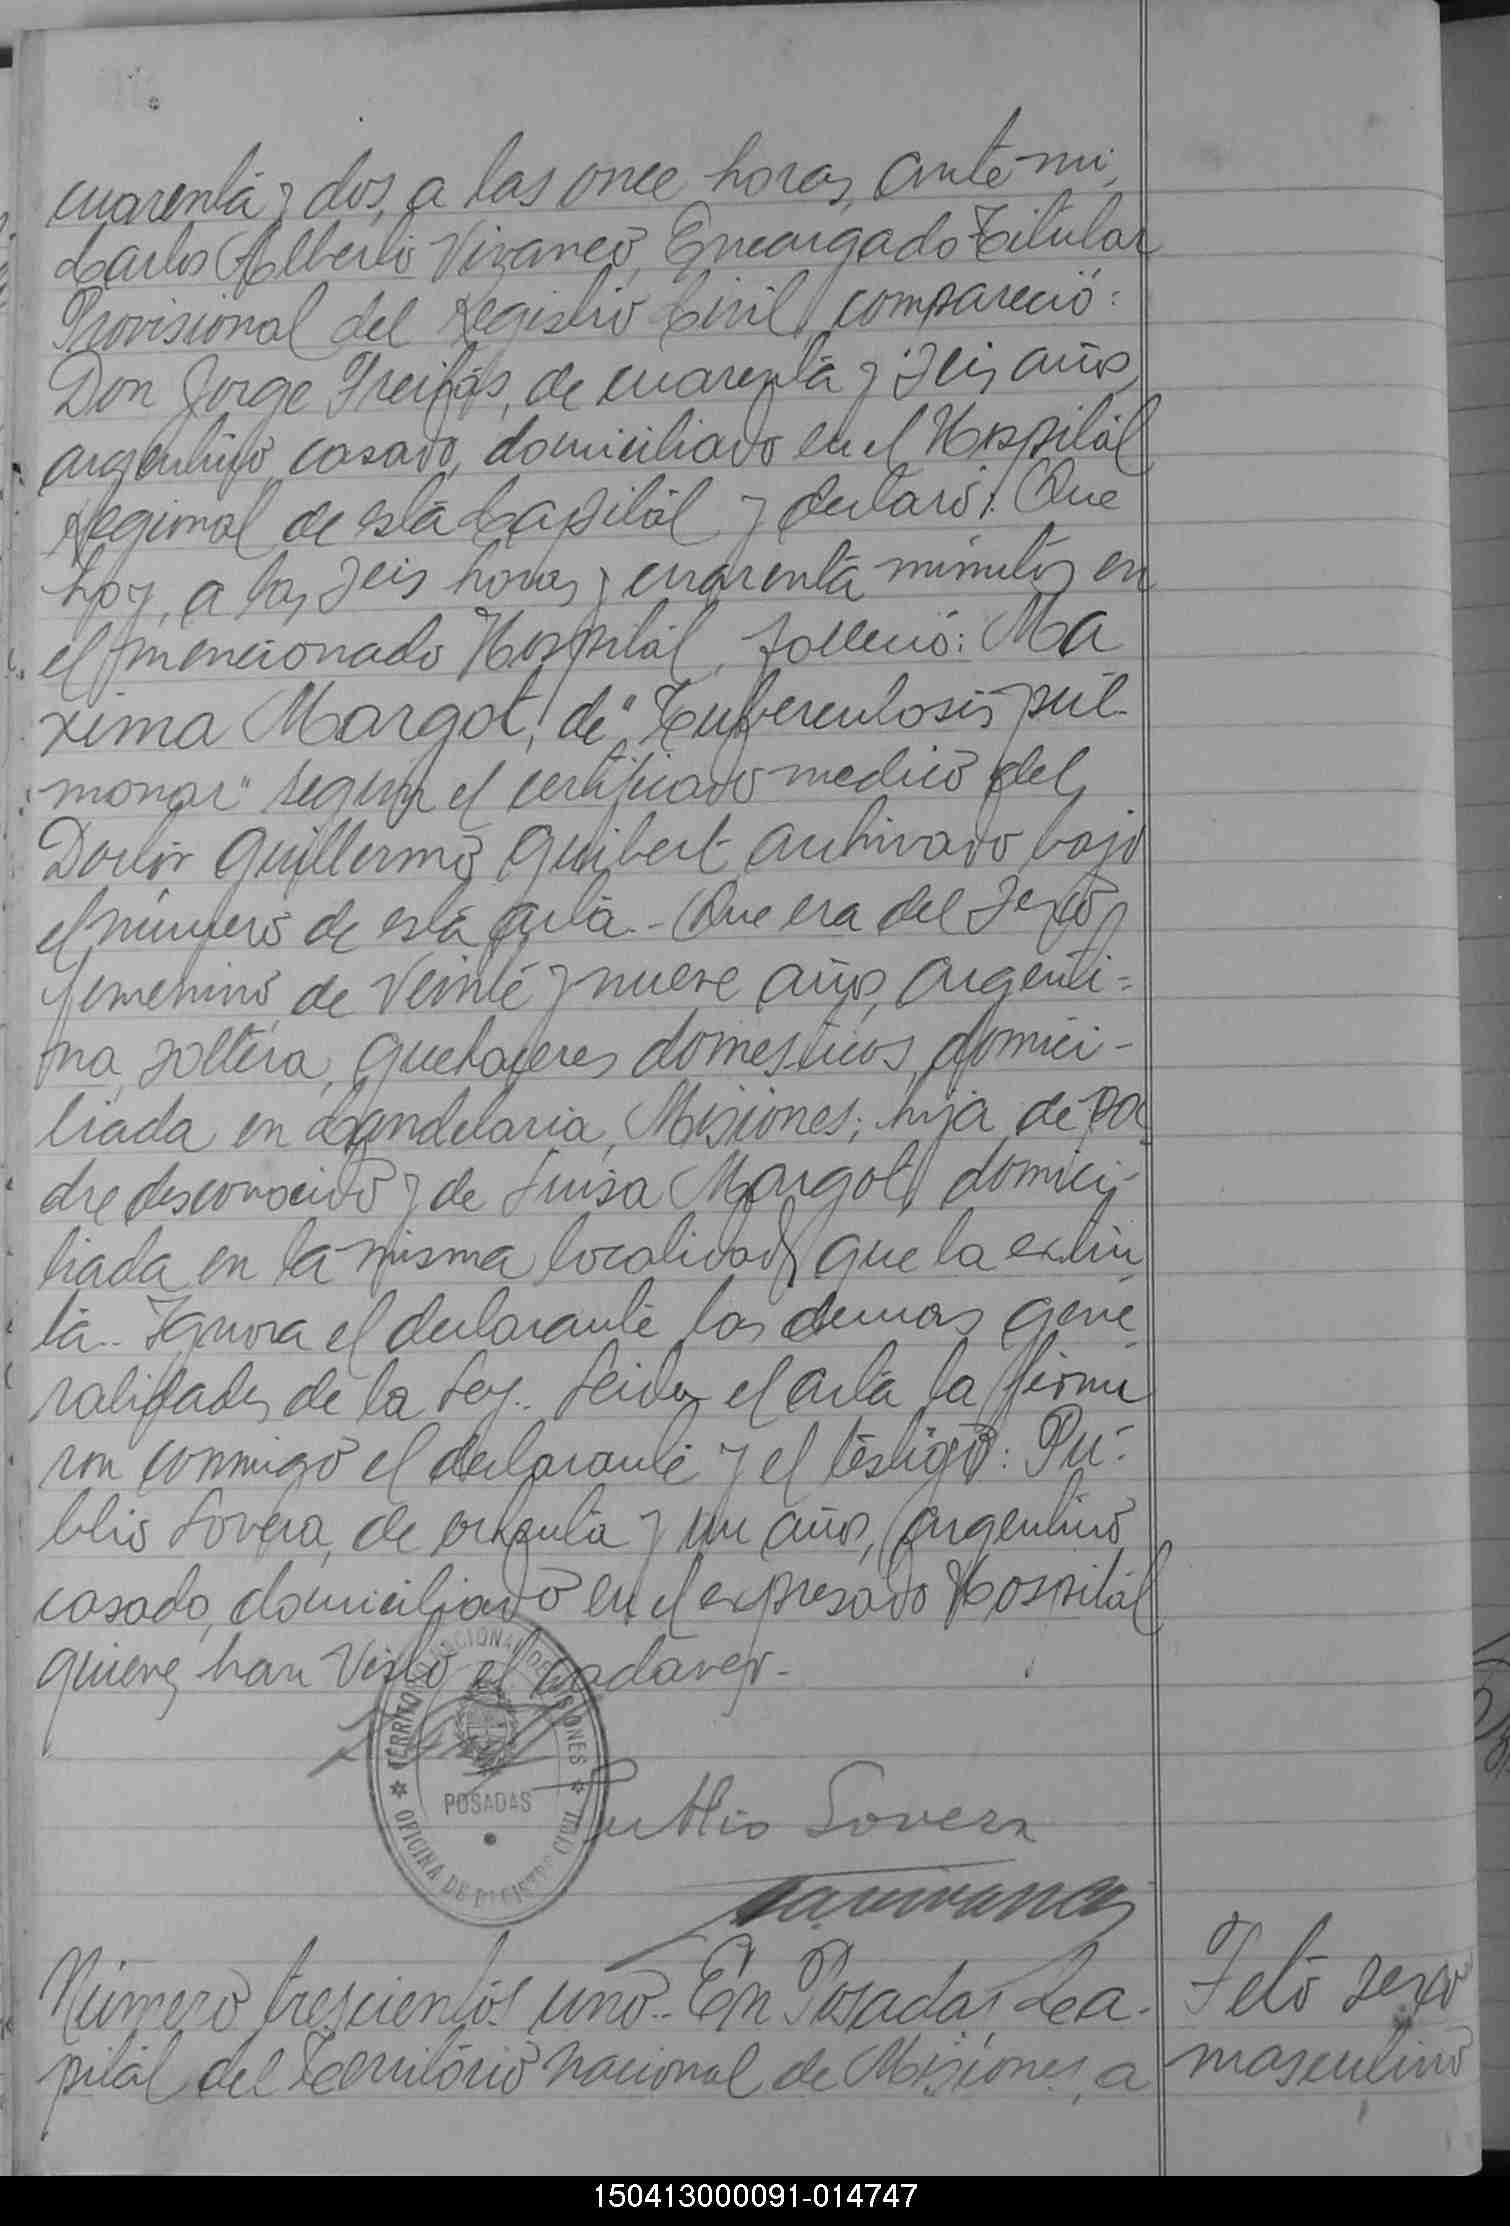 cuarenta y dos, a las once horas, ante mi,
Carlos Alberto Vivanco, Encargado Titular
Provisional del Registro Civil, compareció:
Don Jorge Freitas, de cuarenta y seis años,
argentino, casado, domiciliado en el Hospital
Regional de esta Capital y declaró: Que
hoy, a las seis horas y cuarenta minutos en
el mencionado Hospital, falleció: Ma
xima Margot, de "Tuberculosis pul-
monar" segun el certificado medico del
Doctor Guillermo Guibert archivado bajo
el número de esta acta.- Que era del sexo
femenino, de veinte y nueve años, argenti=
na, soltera, quehaceres domesticos, domici-
liada en Candelaria, Misiones; hija de pa
dre desconocido y de Luisa Margot, domici-
liada en la misma localidad que la extin
ta.. Ignora el declarante las demas gene
ralidades de la Ley.. Leida el acta la firma
ron conmigo el declarante y el testigo: Pú-
blio Lovera, de y un años, argentino
casado, domiciliado en el expresado Hospital
quienes han visto el cadaver.-
TERRITORIO NACIONAL DE MISIONES
POSADAS
OFICINA DE REGISTRO CIVIL
Publio Lovera
Número trescientos uno.. En Posadas, Ca-
pital del Territorio Nacional de Misiones, a
Feto sexo
masculino
150413000091-014747